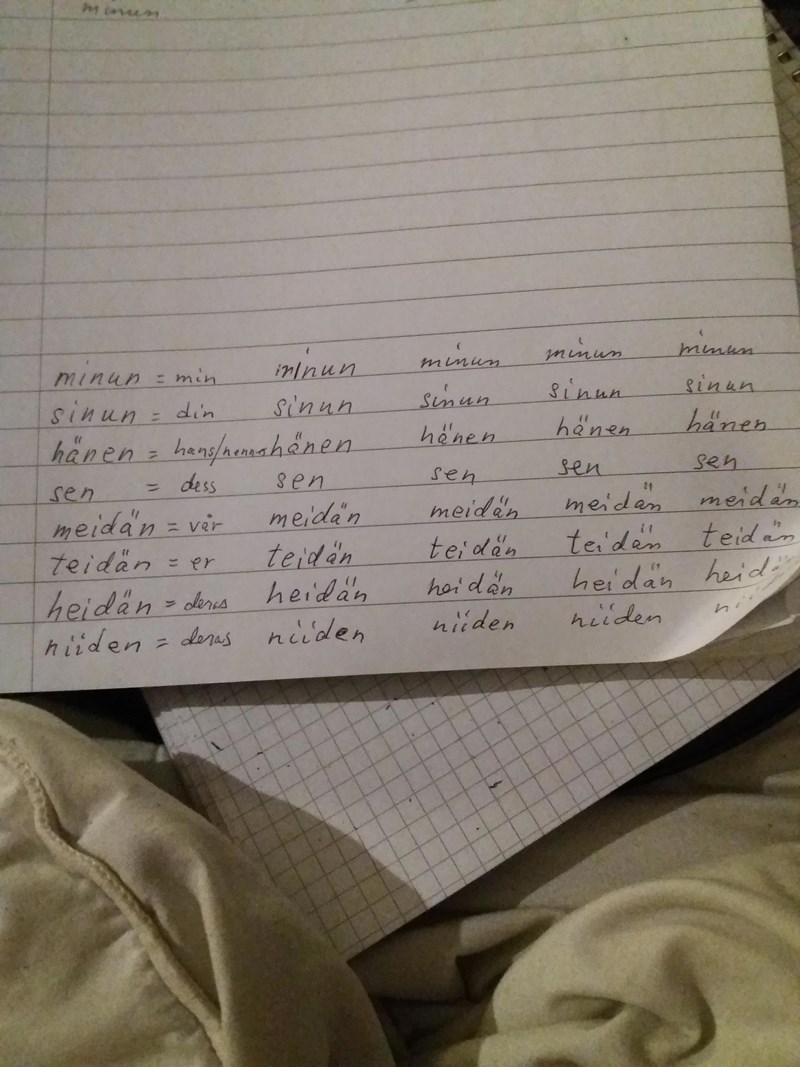 minun
minun = min minun minun minun minun
sinun = din sinun sinun sinun sinun
hänen = hans/hennes hänen hänen hänen hänen
sen = dess sen sen sen sen
meidän = vår meidän meidän meidän meidän
teidän = er teidän teidän teidän teidän
heidän = deras heidän heidän heidän heidä
niiden = deras niiden niiden niiden